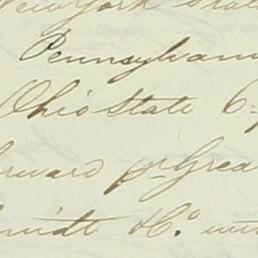 New York State
Pennsylvani
Ohio State 6
rward pr Grea
midt & Co. wi